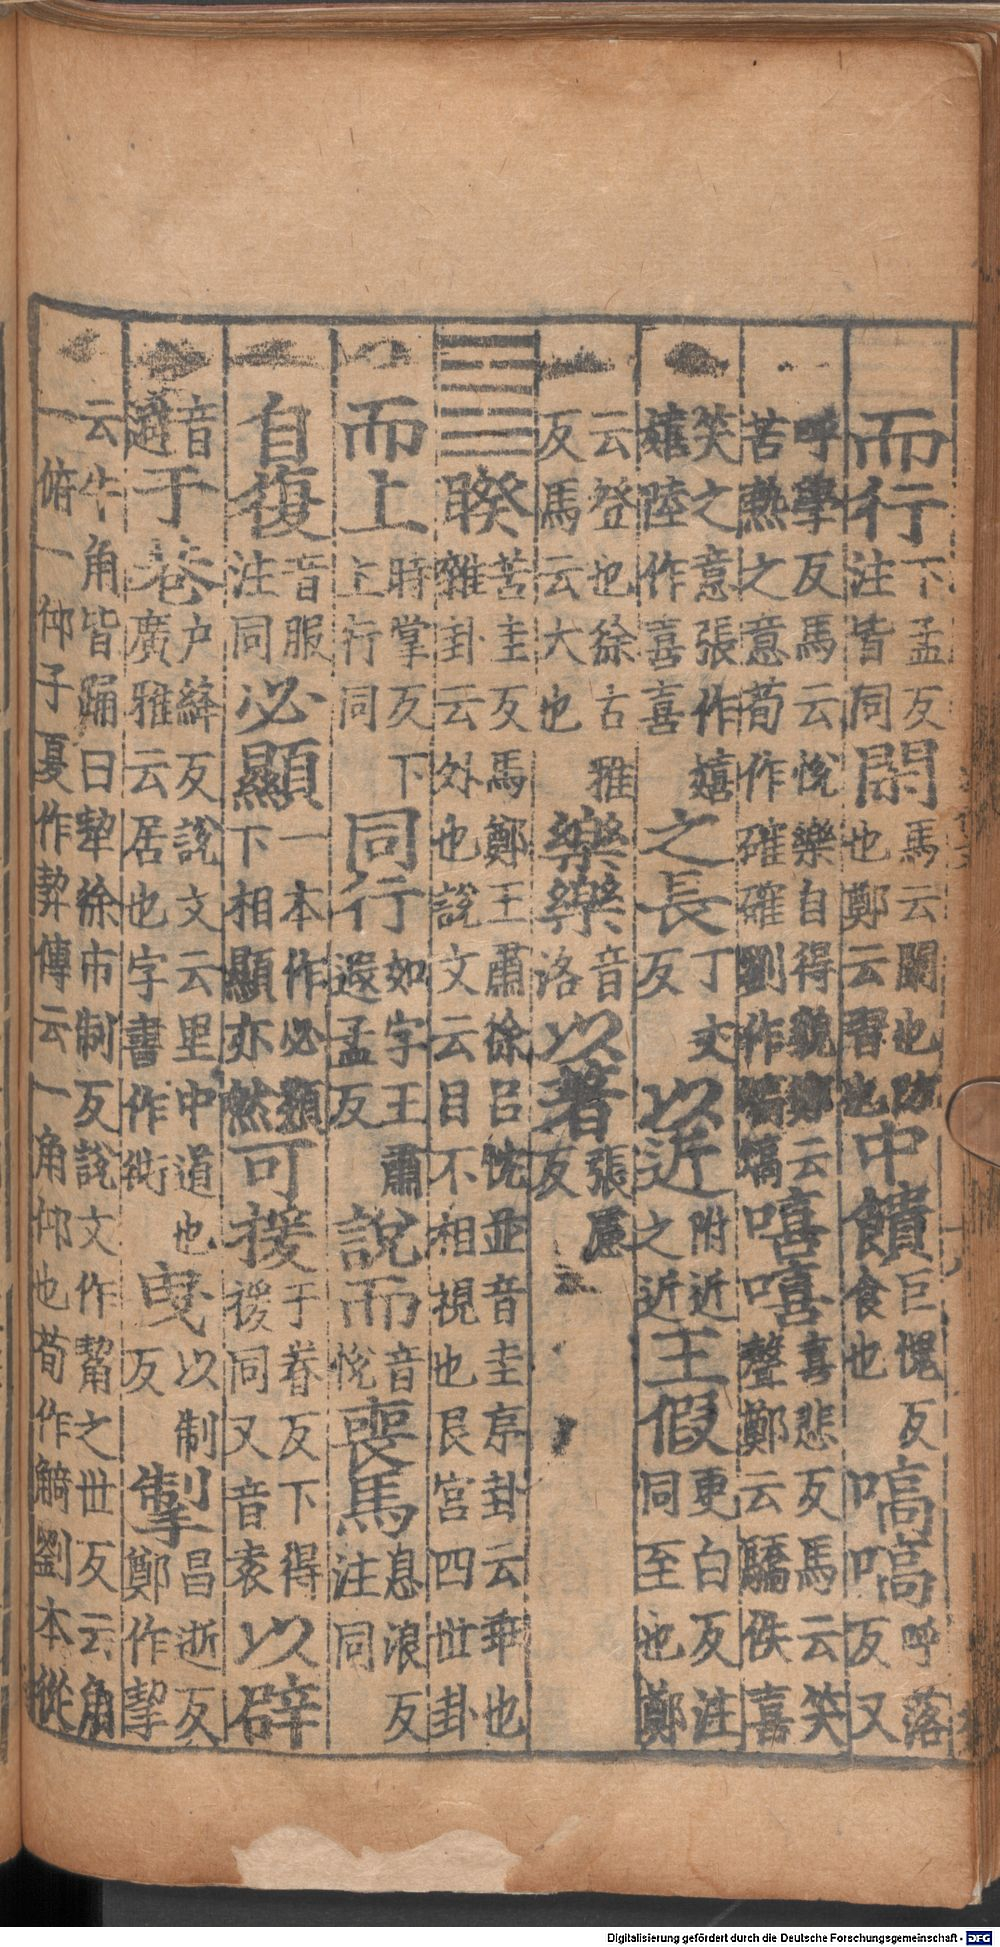 而行下孟反注皆同閑馬云闌也防也鄭云習也中饋巨愧反食也嗃嗃呼落反又
呼學反馬云悅樂自得貌鄭云苦熱之意荀作確確劉作熇熇嘻嘻喜悲反馬云笑聲鄭云驕佚喜
笑之意張作嬉嬉陸作喜喜之長丁丈反以近附近之近王假更白反注同至也鄭
云登也徐古雅反馬云大也樂樂音洛以著張慮反
䷥睽苦圭反馬鄭王肅徐呂忱並音圭序卦云乖也雜卦云外也說文云目不相視也艮宮四世卦
而上時掌反下上行同同行如字王肅遐孟反說而音悅喪馬息浪反注同
自復音服注同必顯一本作必類下相顯亦然可援于眷反下得援同又音袁以辟
音避于巷户絳反說文云里中道也廣雅云居也字書作衖曳以制反掣昌逝反鄭作挈
云牛角皆踊曰犂徐市制反說文作觢之世反云角一俯一仰子夏作契傳云一角仰也荀作觭劉本從
Digitalisierung gefördert durch die Deutsche Forschungsgemeinschaft - DFG